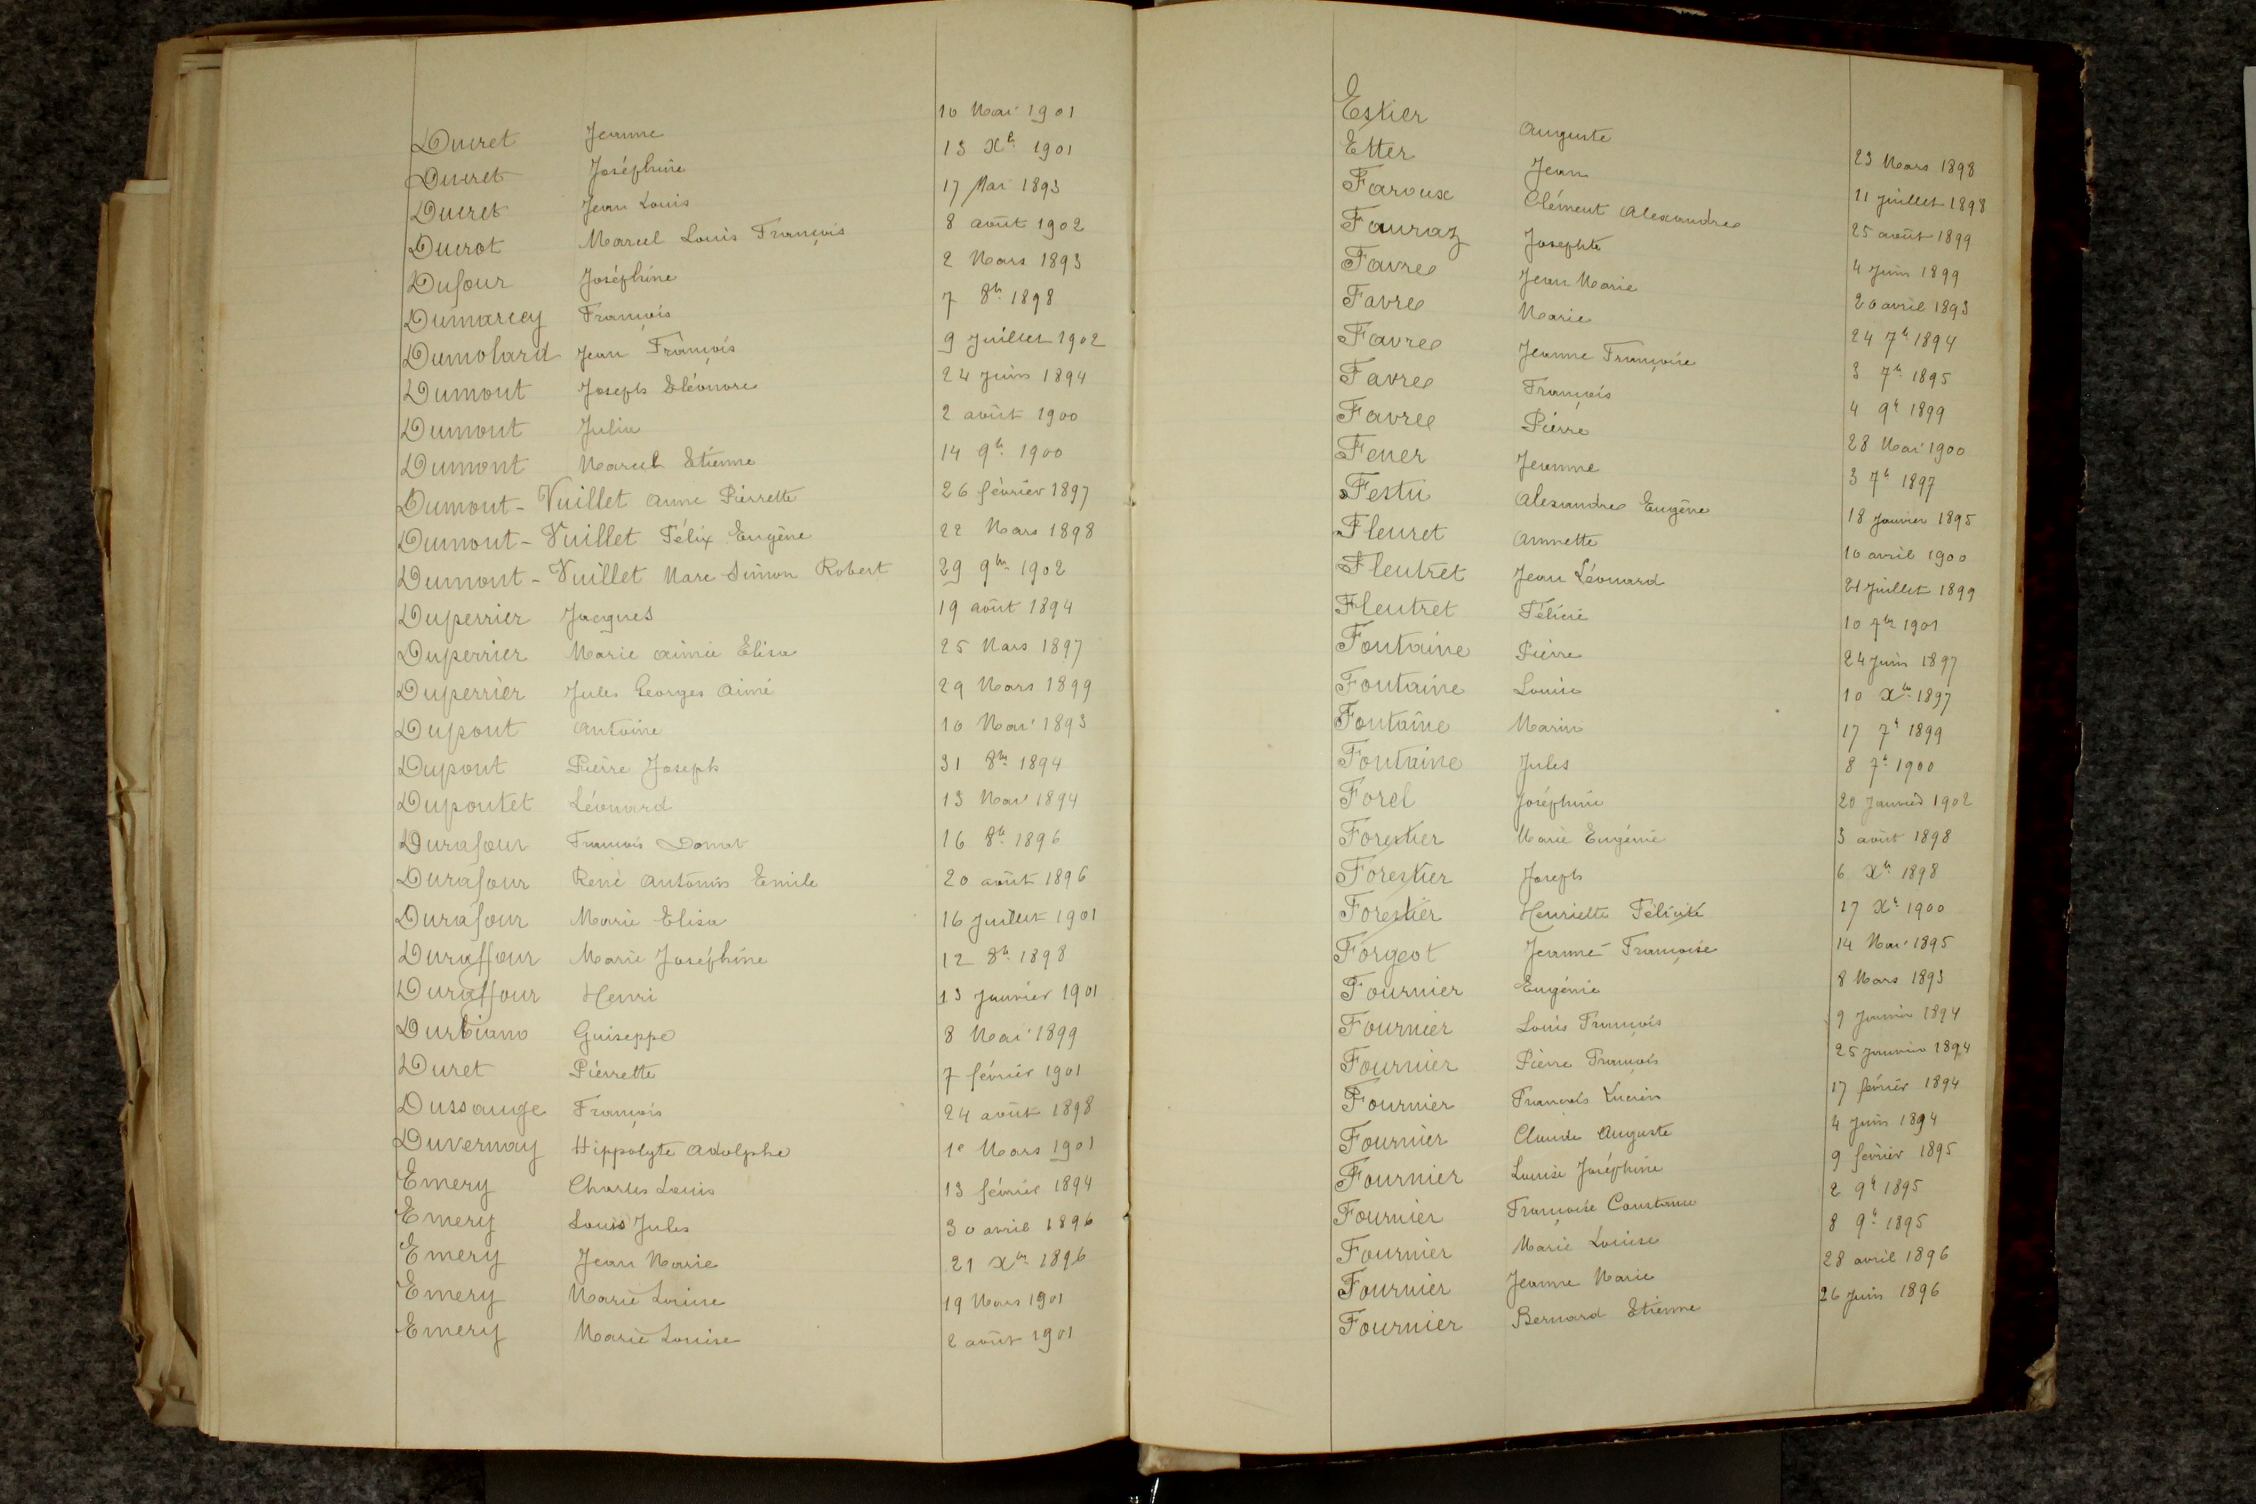 Ducret Jeanne 10 Mai 1901
Ducret Joséphine 13 Xb 1901
Ducret Jean Louis 17 Mai 1893
Ducrot Marcel Louis François 8 août 1902
Dufour Joséphine 2 Mars 1893
Dumarcey François 7 8b 1898
Dumolard Jean François 9 Juillet 1902
Dumont Joseph Eléonore 24 Juin 1894
Dumont Julia 2 août 1900
Dumont Marcel Etienne 14 9b 1900
Dumont-Vuillet Anne Pierrette 26 février 1897
Dumont-Vuillet Félix Eugène 22 Mars 1898
Dumont-Vuillet Marc Simon Robert 29 9bre 1902
Duperrier Jacques 19 août 1894
Duperrier Marie Aimée Elisa 25 Mars 1897
Duperrier Jules Georges Aimé 29 Mars 1899
Dupont Antoine 10 Mai 1893
Dupont Pierre Joseph 31 8bre 1894
Dupontet Léonard 13 Mai 1894
Durafour François Donat 16 8b 1896
Durafour René Antonin Emile 20 août 1896
Durafour Marie Elisa 16 Juillet 1901
Duraffour Marie Joséphine 12 8b 1898
Duraffour Henri 13 Janvier 1901
Durbiano Guiseppe 8 Mai 1899
Duret Pierrette 7 février 1901
Dussauge François 24 août 1898
Duvernay Hippolyte Adolphe 1e Mars 1901
Emery Charles Louis 13 février 1894
Emery Louis Jules 30 avril 1896
Emery Jean Marie 21 Xbre 1896
Emery Marie Louise 19 Mars 1901
Emery Marie Louise 2 août 1901
Estier Auguste 23 Mars 1898
Etter Jean 11 Juillet 1898
Faroux Clément Alexandre 25 août 1899
Fauraz Josephte 4 Juin 1899
Favre Jean Marie 20 avril 1893
Favre Marie 24 7b 1894
Favre Jeanne Françoise 3 7b 1895
Favre François 4 9b 1899
Favre Pierre 28 Mai 1900
Fener Jeanne 3 7b 1897
Festu Alexandre Eugène 18 Janvier 1895
Fleuret Annette 10 avril 1900
Fleutret Jean Léonard 21 Juillet 1899
Fleutret Félicie 10 7bre 1901
Fontaine Pierre 24 Juin 1897
Fontaine Louise 10 Xbre 1897
Fontaine Marin 17 7b 1899
Fontaine Jules 8 7b 1900
Forel Joséphine 20 Janvier 1902
Forestier Marie Eugénie 3 août 1898
Forestier Joseph 6 Xb 1898
Forestier Henriette Félicité 17 Xb 1900
Forgeot Jeanne-Françoise 14 Mai 1895
Fournier Eugénie 8 Mars 1893
Fournier Louis François 9 Janvier 1894
Fournier Pierre François 25 Janvier 1894
Fournier François Lucien 17 février 1894
Fournier Claude Auguste 4 Juin 1894
Fournier Louise Joséphine 9 février 1895
Fournier Françoise Constance 2 9b 1895
Fournier Marie Louise 8 9b 1895
Fournier Jeanne Marie 28 avril 1896
Fournier Bernard Etienne 26 Juin 1896